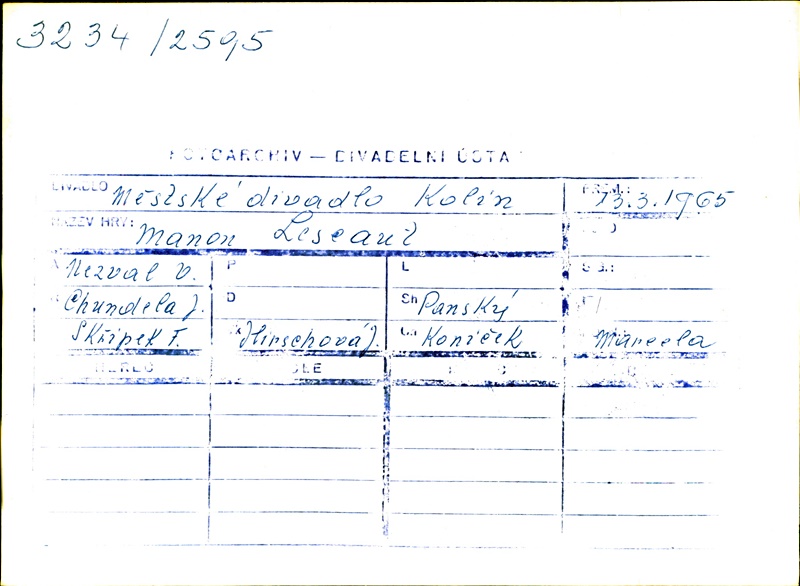 3234/2595
FOTOARCHIV — DIVADELNÍ ÚSTA
DIVADLO Městské divadlo Kolín PREM.: 13.3.1965
NÁZEV HRY: Manon Lescaut
Nezval V. P L
Chundela J. D Sh Panský
Skřípek F. Hirschová J. Koníček Marcela
HEREC